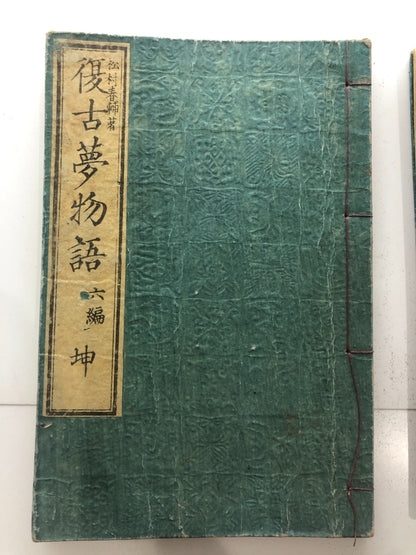 松村春輔著
復古夢物語 六編 坤